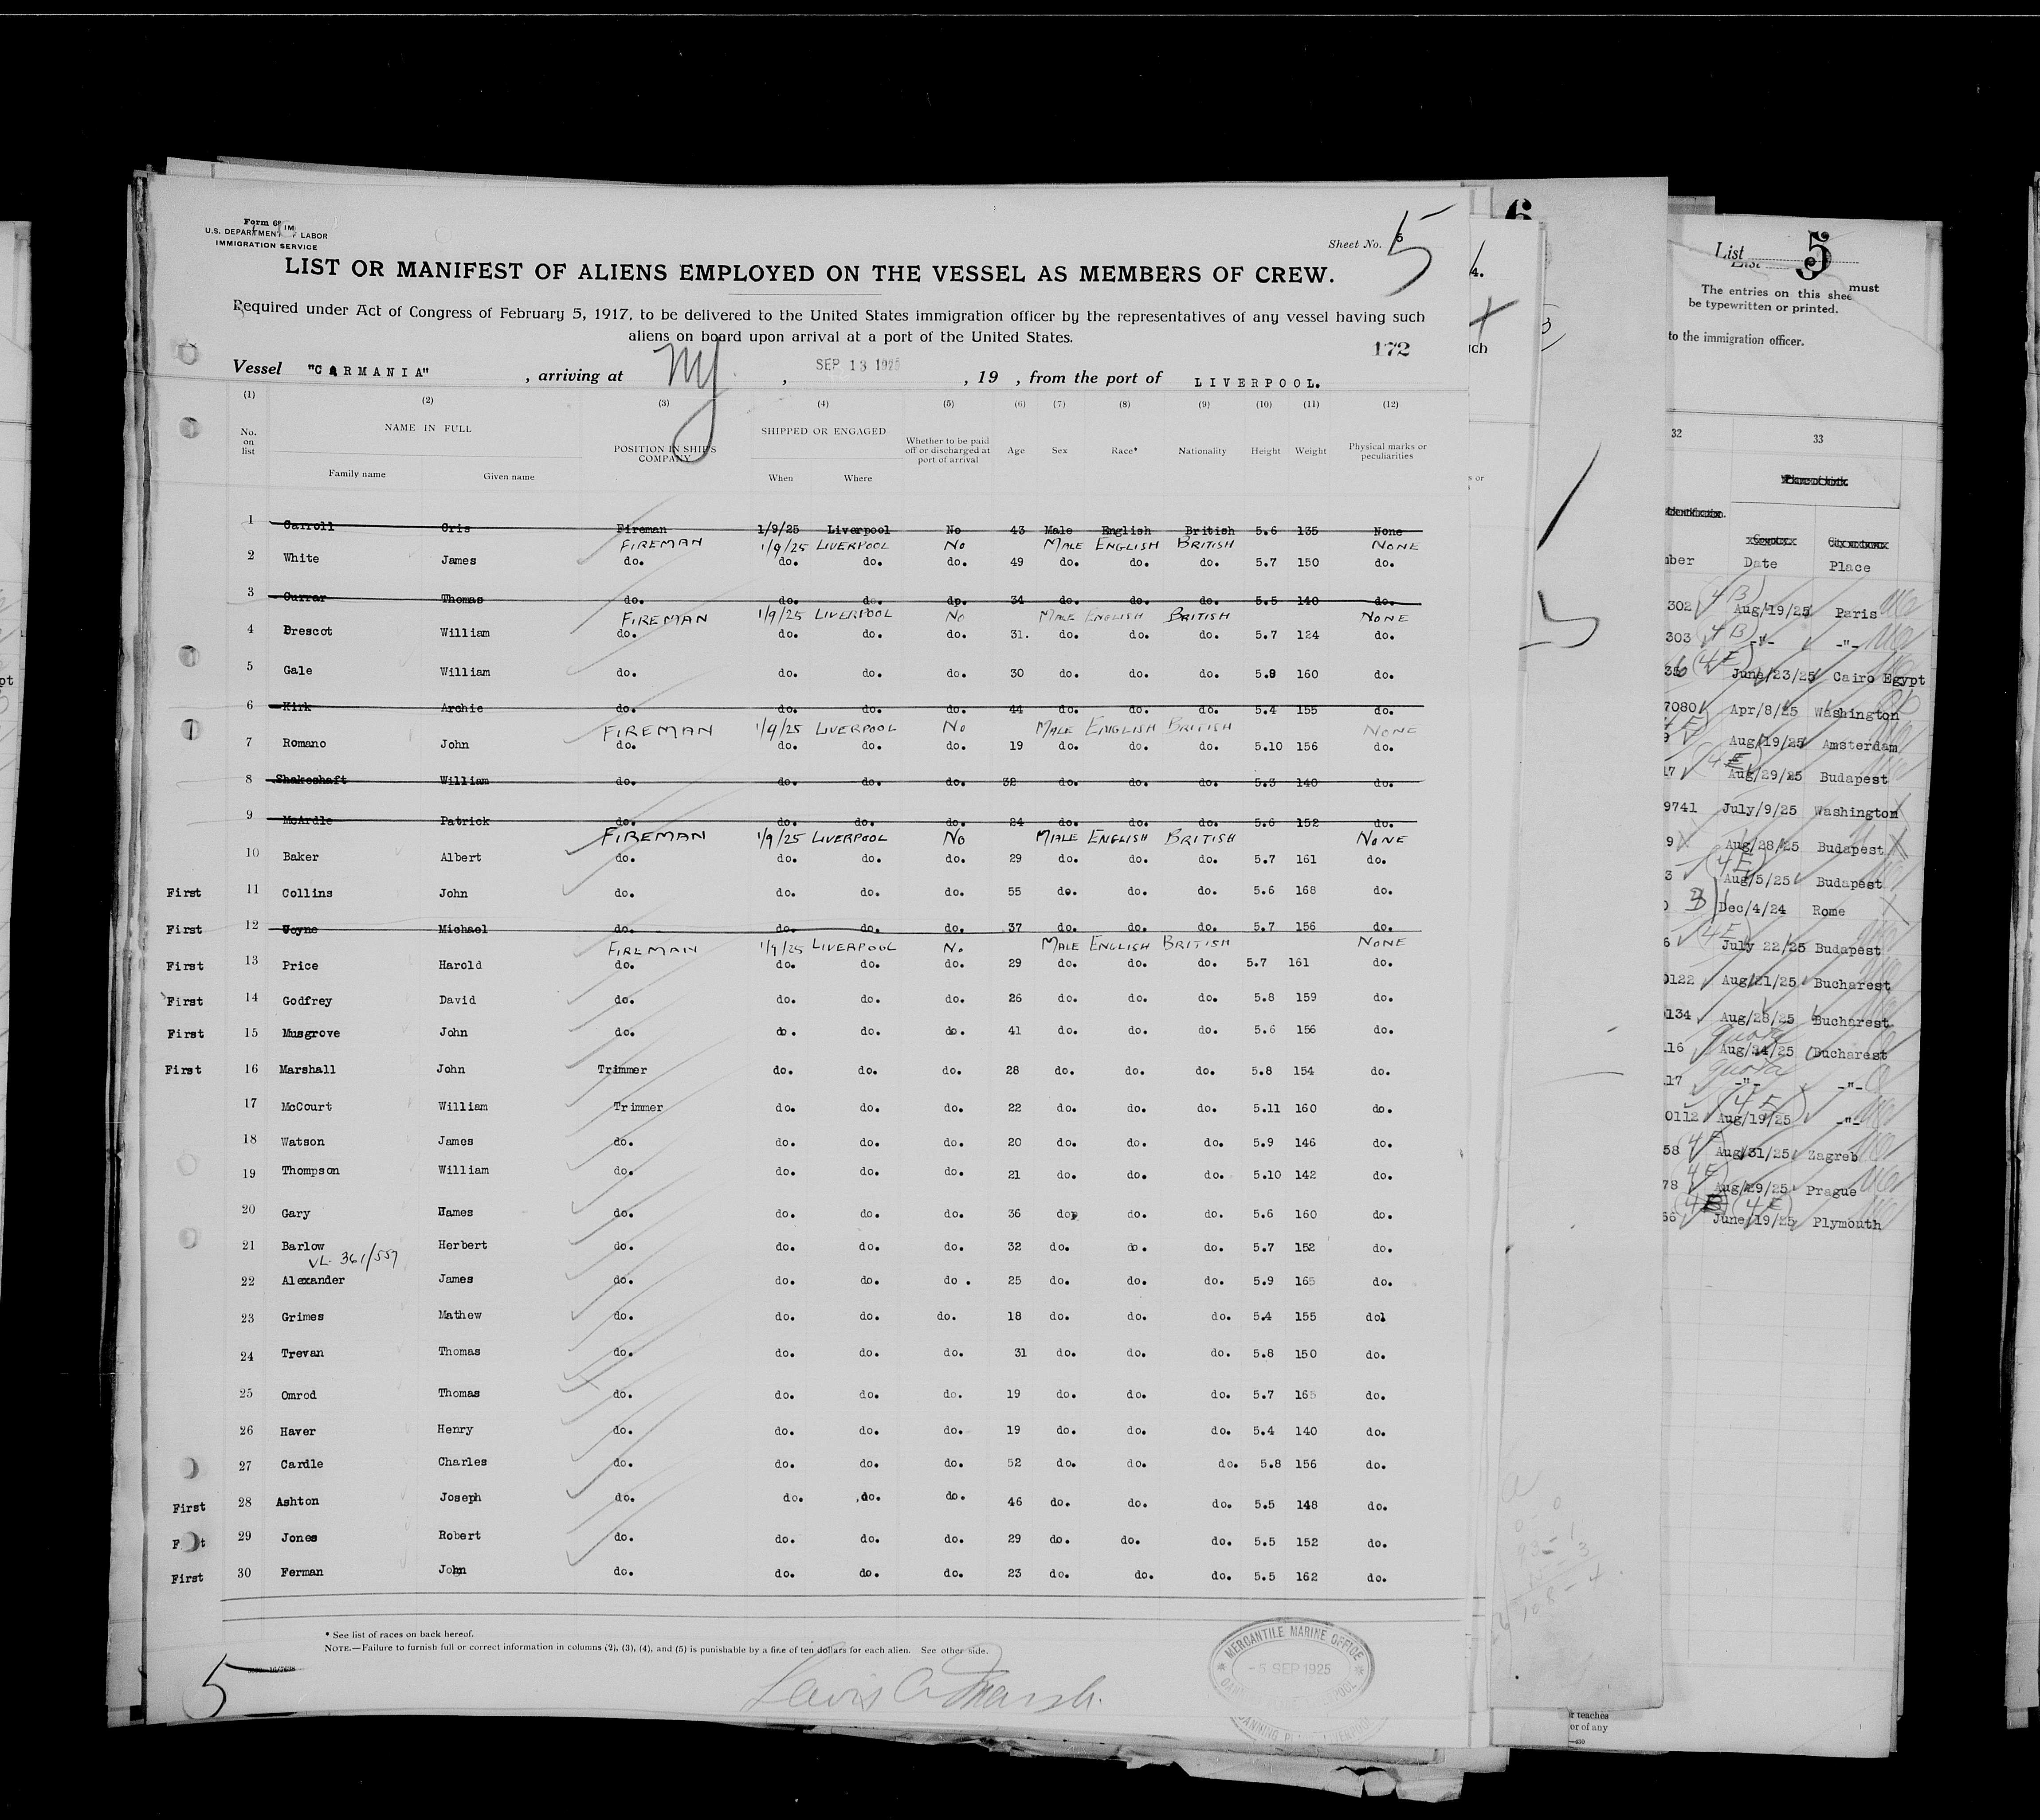 Form 68
U. S. DEPARTMENT OF LABOR
IMMIGRATION SERVICE
Sheet No. 5
LIST OR MANIFEST OF ALIENS EMPLOYED ON THE VESSEL AS MEMBERS OF CREW.
Required under Act of Congress of February 5, 1917, to be delivered to the United States immigration officer by the representatives of any vessel having such
aliens on board upon arrival at a port of the United States.
172
Vessel "CARMANIA", arriving at NY, SEP 13 1925, 19 , from the port of LIVERPOOL.
(1) (2) (3) (4) (5) (6) (7) (8) (9) (10) (11) (12)
No. on list NAME IN FULL Family name Given name POSITION IN SHIP'S COMPANY SHIPPED OR ENGAGED When Where Whether to be paid off or discharged at port of arrival Age Sex Race* Nationality Height Weight Physical marks or peculiarities
1 Carroll Cris Fireman 1/9/25 Liverpool No 43 Male English British 5.6 135 None
FIREMAN 1/9/25 LIVERPOOL NO MALE ENGLISH BRITISH NONE
2 White James do. do. do. do. 49 do. do. do. 5.7 150 do.
3 Currar Thomas do. do. do. dp. 34 do. do. do. 5.5 140 do.
FIREMAN 1/9/25 LIVERPOOL NO MALE ENGLISH BRITISH NONE
4 Brescot William do. do. do. do. 31. do. do. do. 5.7 124 do.
5 Gale William do. do. do. do. 30 do. do. do. 5.8 160 do.
6 Kirk Archie do. do. do. do. 44 do. do. do. 5.4 155 do.
FIREMAN 1/9/25 LIVERPOOL NO MALE ENGLISH BRITISH NONE
7 Romano John do. do. do. do. 19 do. do. do. 5.10 156 do.
8 Shakeshaft William do. do. do. do. 32 do. do. do. 5.3 140 do.
9 McArdle Patrick do. do. do. do. 24 do. do. do. 5.6 152 do.
FIREMAN 1/9/25 LIVERPOOL NO MALE ENGLISH BRITISH NONE
10 Baker Albert do. do. do. do. 29 do. do. do. 5.7 161 do.
First 11 Collins John do. do. do. do. 55 do. do. do. 5.6 168 do.
First 12 Joyne Michael do. do. do. do. 37 do. do. do. 5.7 156 do.
FIREMAN 1/9/25 LIVERPOOL NO MALE ENGLISH BRITISH NONE
First 13 Price Harold do. do. do. do. 29 do. do. do. 5.7 161 do.
First 14 Godfrey David do. do. do. do. 26 do. do. do. 5.8 159 do.
First 15 Musgrove John do. do. do. do. 41 do. do. do. 5.6 156 do.
First 16 Marshall John Trimmer do. do. do. 28 do. do. do. 5.8 154 do.
17 McCourt William Trimmer do. do. do. 22 do. do. do. 5.11 160 do.
18 Watson James do. do. do. do. 20 do. do. do. 5.9 146 do.
19 Thompson William do. do. do. do. 21 do. do. do. 5.10 142 do.
20 Gary James do. do. do. do. 36 do. do. do. 5.6 160 do.
21 Barlow Herbert do. do. do. do. 32 do. do. do. 5.7 152 do.
VL. 361/557
22 Alexander James do. do. do. do . 25 do. do. do. 5.9 165 do.
23 Grimes Mathew do. do. do. do. 18 do. do. do. 5.4 155 dol
24 Trevan Thomas do. do. do. do. 31 do. do. do. 5.8 150 do.
25 Omrod Thomas do. do. do. do. 19 do. do. do. 5.7 165 do.
26 Haver Henry do. do. do. do. 19 do. do. do. 5.4 140 do.
27 Cardle Charles do. do. do. do. 52 do. do. do. 5.8 156 do.
First 28 Ashton Joseph do. do. do. do. 46 do. do. do. 5.5 148 do.
29 Jones Robert do. do. do. do. 29 do. do. do. 5.5 152 do.
First 30 Ferman John do. do. do. do. 23 do. do. do. 5.5 162 do.
* See list of races on back hereof.
NOTE.—Failure to furnish full or correct information in columns (2), (3), (4), and (5) is punishable by a fine of ten dollars for each alien. See other side.
5
MERCANTILE MARINE OFFICE
-5 SEP 1925
CANNING PLACE LIVERPOOL
6
4.
List 5
The entries on this sheet must
be typewritten or printed.
to the immigration officer.
32 33
Date Place
302 (4 B) Aug/19/25 Paris
303 (4 B) -"- -"-
(4 E) June/23/25 Cairo Egypt
7080 Apr/8/25 Washington
Aug/19/25 Amsterdam
17 (4 E) Aug/29/25 Budapest
9741 July/9/25 Washington
9 Aug/28/25 Budapest
3 (4 E) Aug/5/25 Budapest
Dec/4/24 Rome
6 (4 E) July 22/25 Budapest
0122 Aug/21/25 Bucharest
0134 Aug/28/25 Bucharest
116 quota Aug/24/25 Bucharest
17 quota -"- -"-
0112 (4 E) Aug/19/25 -"-
58 (4 E) Aug/31/25 Zagreb
78 (4 E) Aug/29/25 Prague
56 (4 E) June/19/25 Plymouth